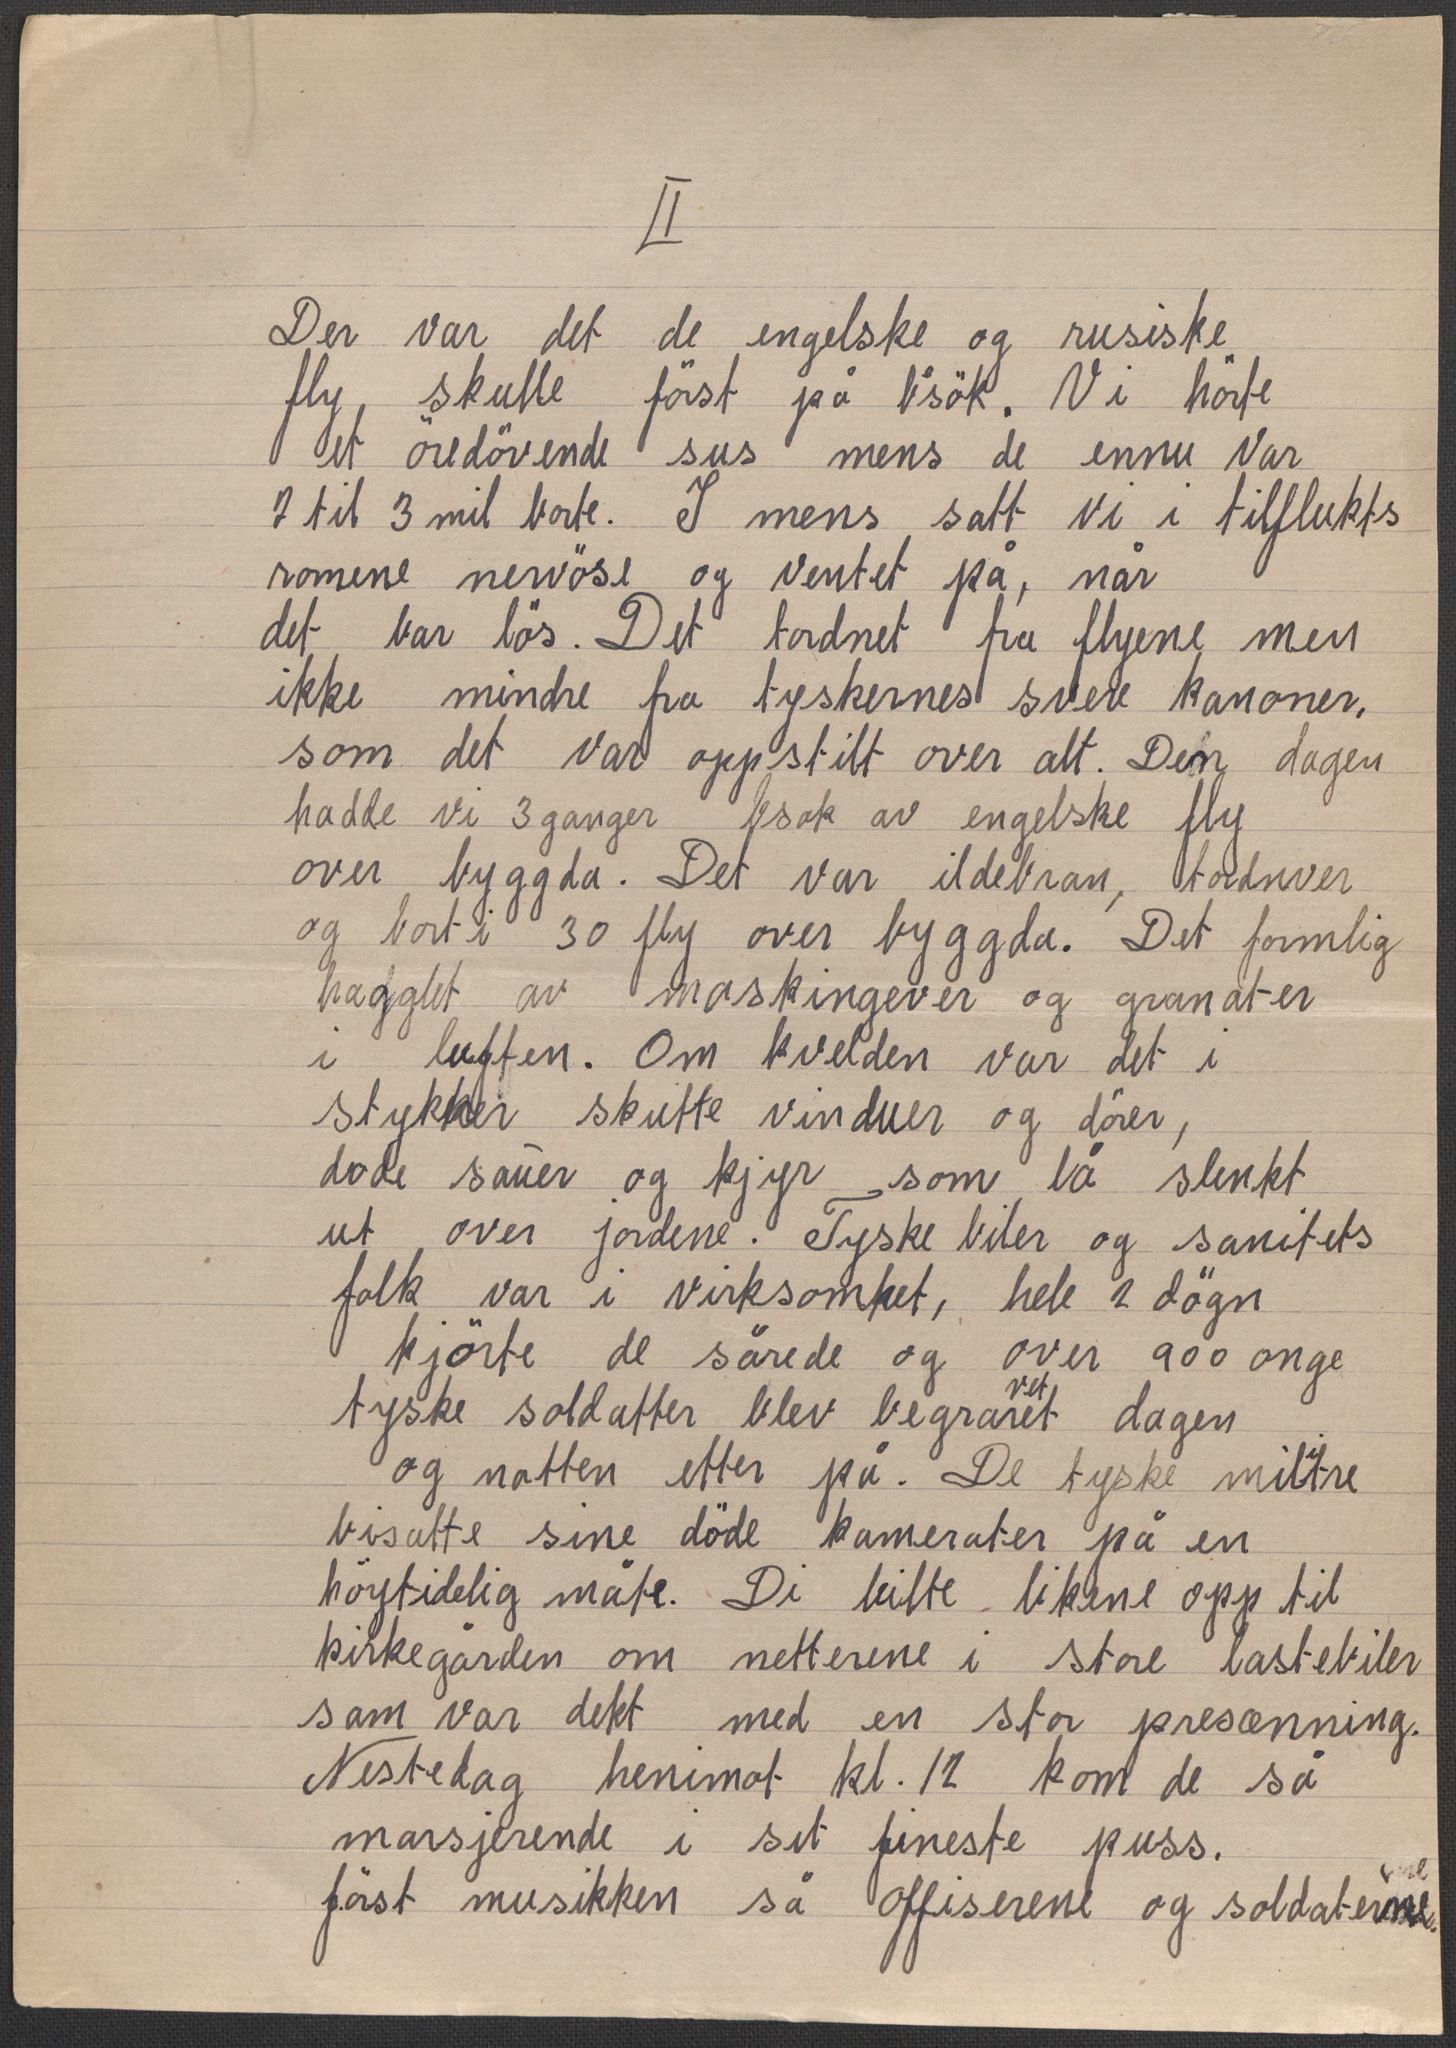 II
Der var det de engelske og rusiske
fly, skulle först på bsök. Vi hörte
et öredövende sus mens de ennu var
2 til 3 mil borte. I mens satt vi i tilflukts
romene nervöse og ventet på, når
det bar lös. Det tordnet fra flyene men
ikke mindre fra tyskernes svere kanoner,
som det var oppstilt over alt. Den dagen
hadde vi 3 ganger bsøk av engelske fly
over byggda. Det var ildebran, tordnver
og bort i 30 fly over byggda. Det formlig
hagglet av maskingever og granater
i luften. Om kvelden var det i
stykker skutte vinduer og dörer,
døde sauer og kjyr som lå slenkt
ut over jordene. Tyske biler og sanitets
folk var i virksomhet, hele 2 dögn
kjörte de sårede og over 900 onge
tyske soldatter blev begravet dagen
og natten etter på. De tyske militre
bisatte sine döde kamerater på en
höytidelig måte. Di bilte likene opp til
kirkegården om netterene i store lastebiler
som var dekt med en stor presænning.
Nestedag henimot kl. 12 kom de så
marsjerende i sit fineste puss.
först musikken så offiserene og soldaterne.